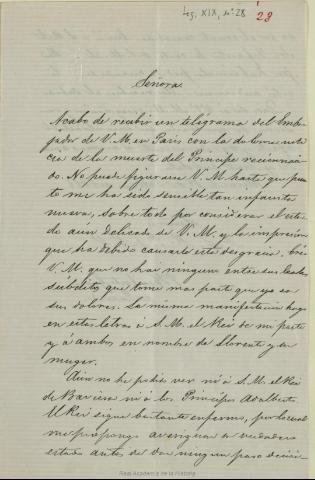 Leg. XIX, nº 28
28
Señora
Acabo de recibir un telégrama del Emba-
jador de V. M. en Paris con la dolorosa noti-
cia de la muerte del Principe recien naci-
do. No puede figurarse V. M. hasta que pun-
to me ha sido sensible tan infausta
nueva, sobre todo por considerar el esta-
do aún delicado de V. M. y la impresion
que ha debido causarle esta desgracia. Crea
V. M. que no hay ninguno entre sus leales
súbditos que tome mas parte que yo en
sus dolores. La misma manifestacion hago
en estas letras á S. M. el Rei de mi parte
y á ambos en nombre de Llorente y su
muger.
Aun no he podido ver ni á S. M. el Rei
de Baviera ni á los Principes Adalberto.
El Rei sigue bastante enfermo, por lo cual
me propongo averiguar su verdadero
estado antes de dar ningun paso
Real Academia de la Historia